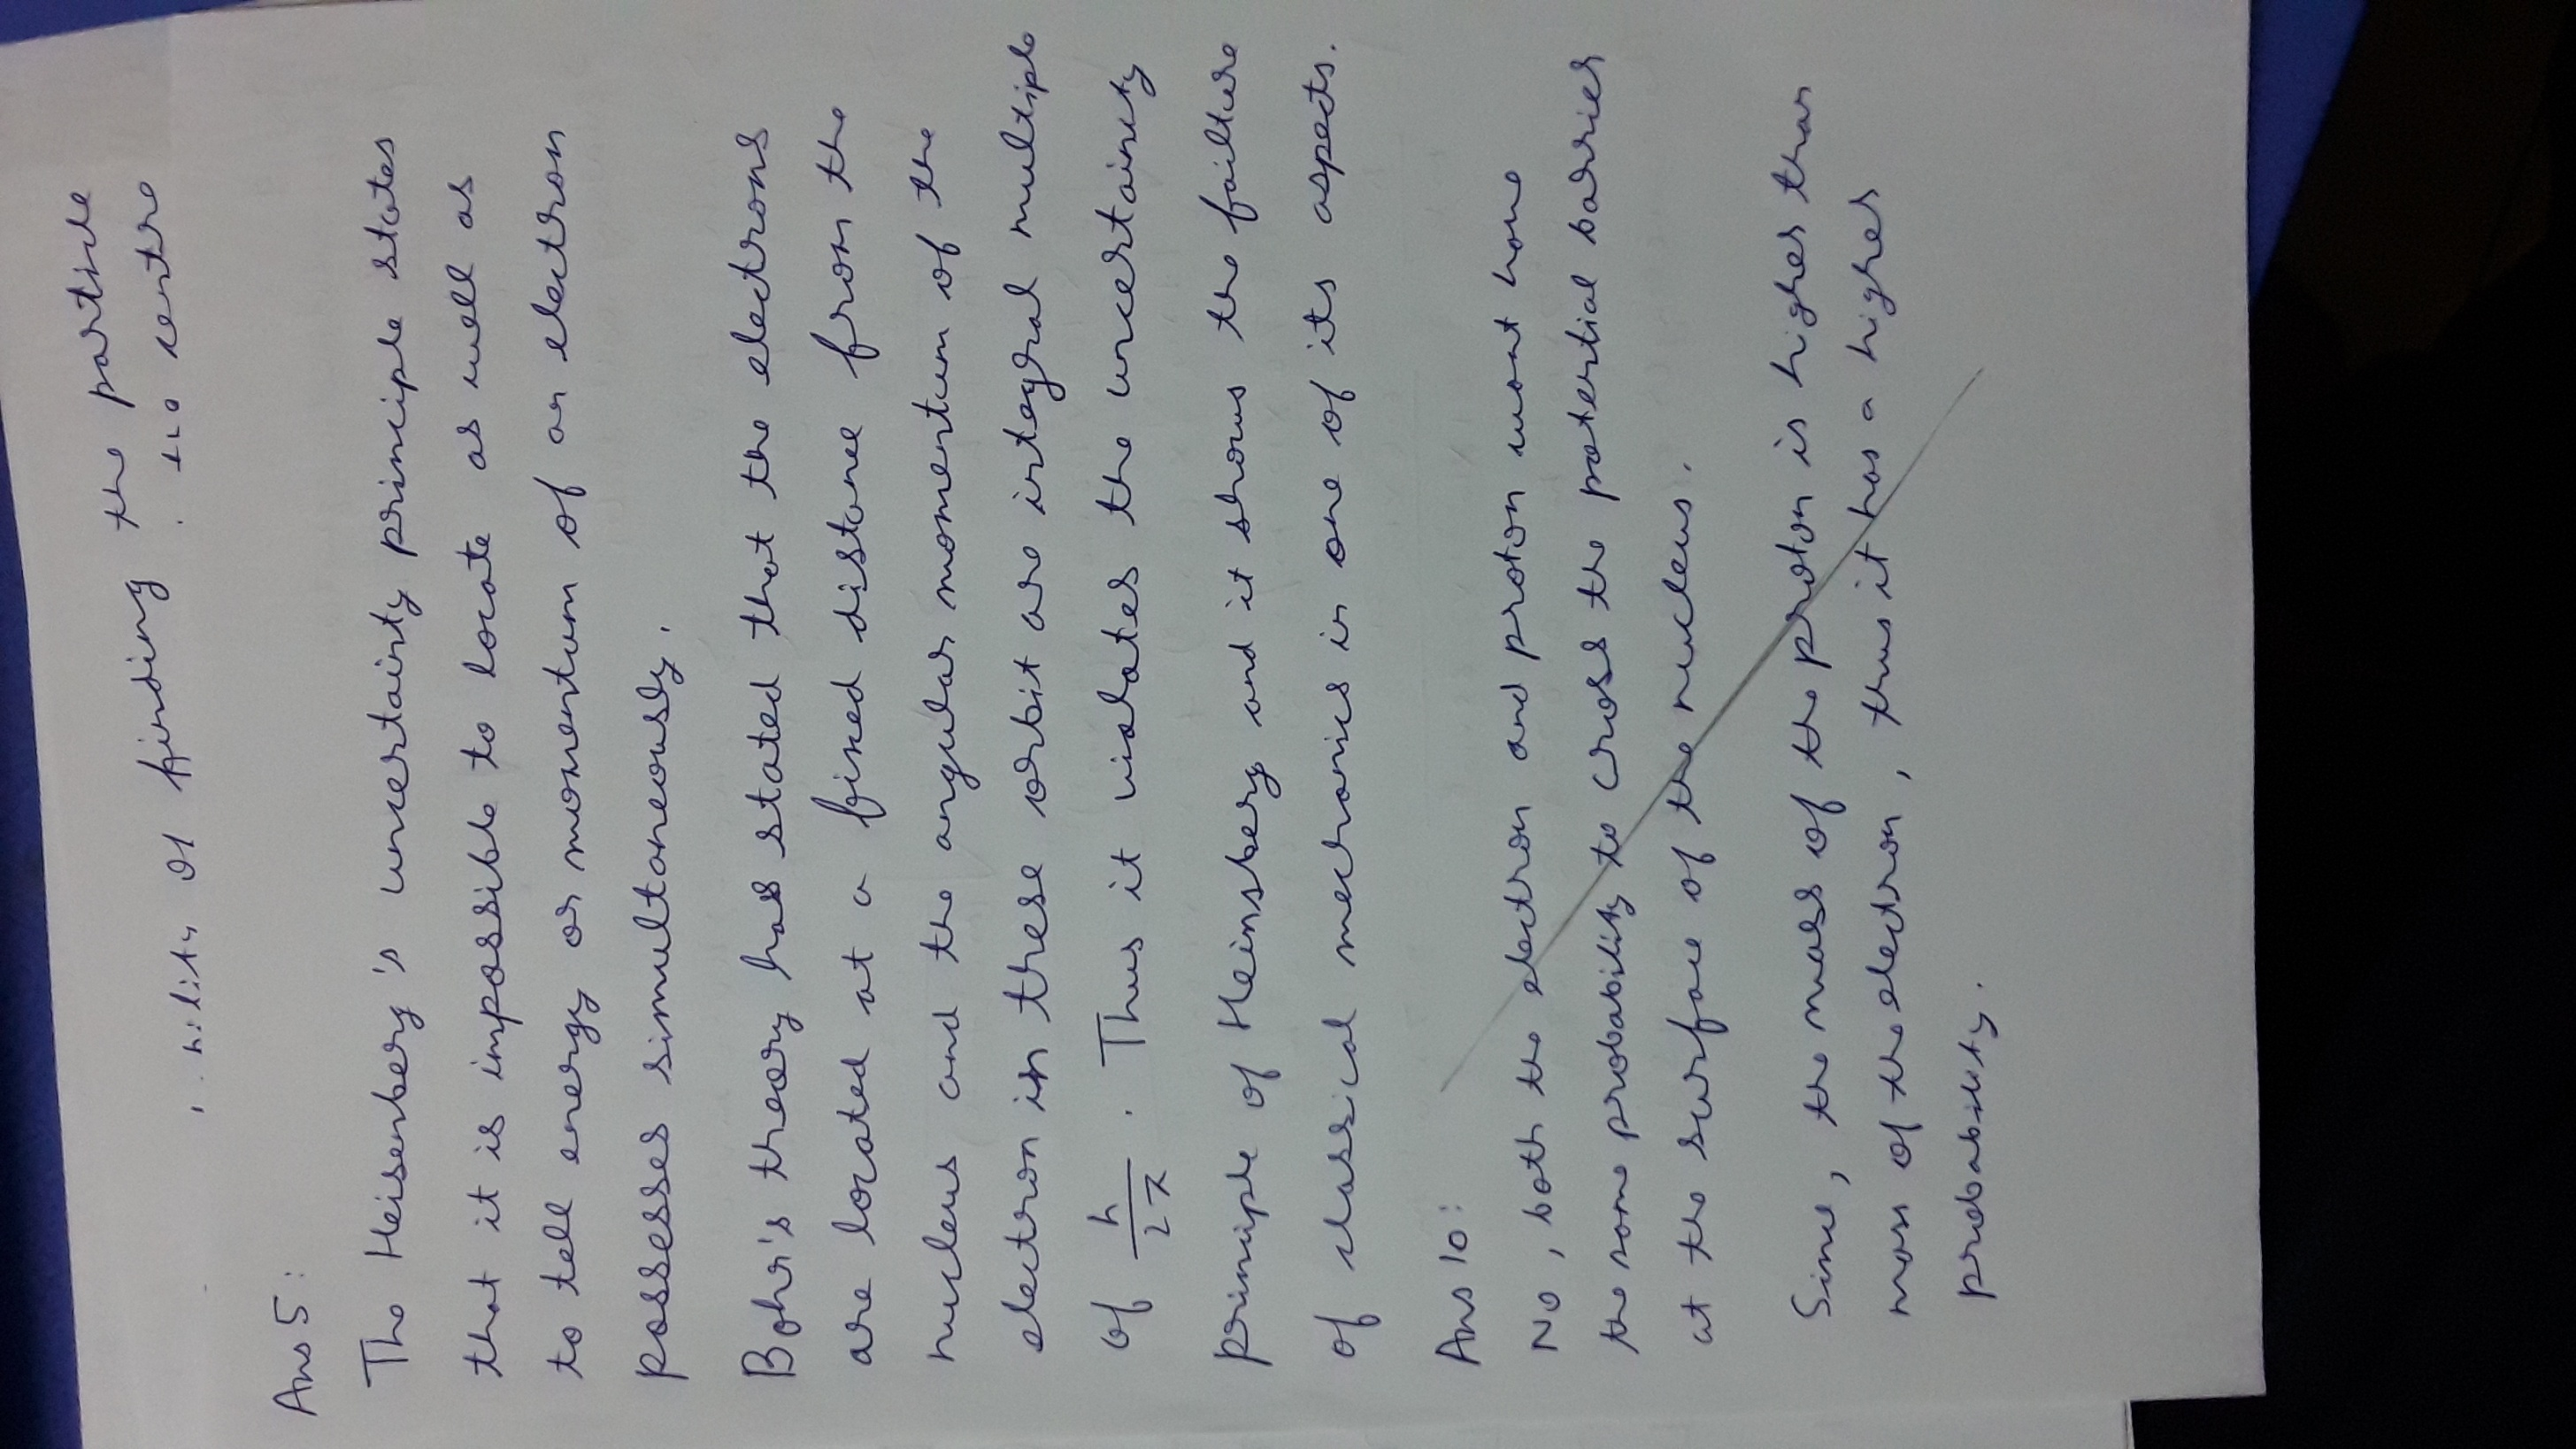 finding the particle
the centre
Ans 5:
The Heisenberg's uncertainty principle states
that it is impossible to locate as well as
to tell energy or momentum of an electron
possesses simultaneously.
Bohr's theory has stated that the electrons
are located at a fixed distance from the
nucleus and the angular momentum of the
electron in these orbit are integral multiple
of h/2π. Thus it violates the uncertainity
principle of Heinsberg and it shows the failture
of classical mechanics in one of its aspects.
Ans 10:
No, both the electron and proton wont have
the same probability to cross the potential barrier
at the surface of the nucleus.
Since, the mass of the proton is higher than
mass of the electron, thus it has a higher
probability.